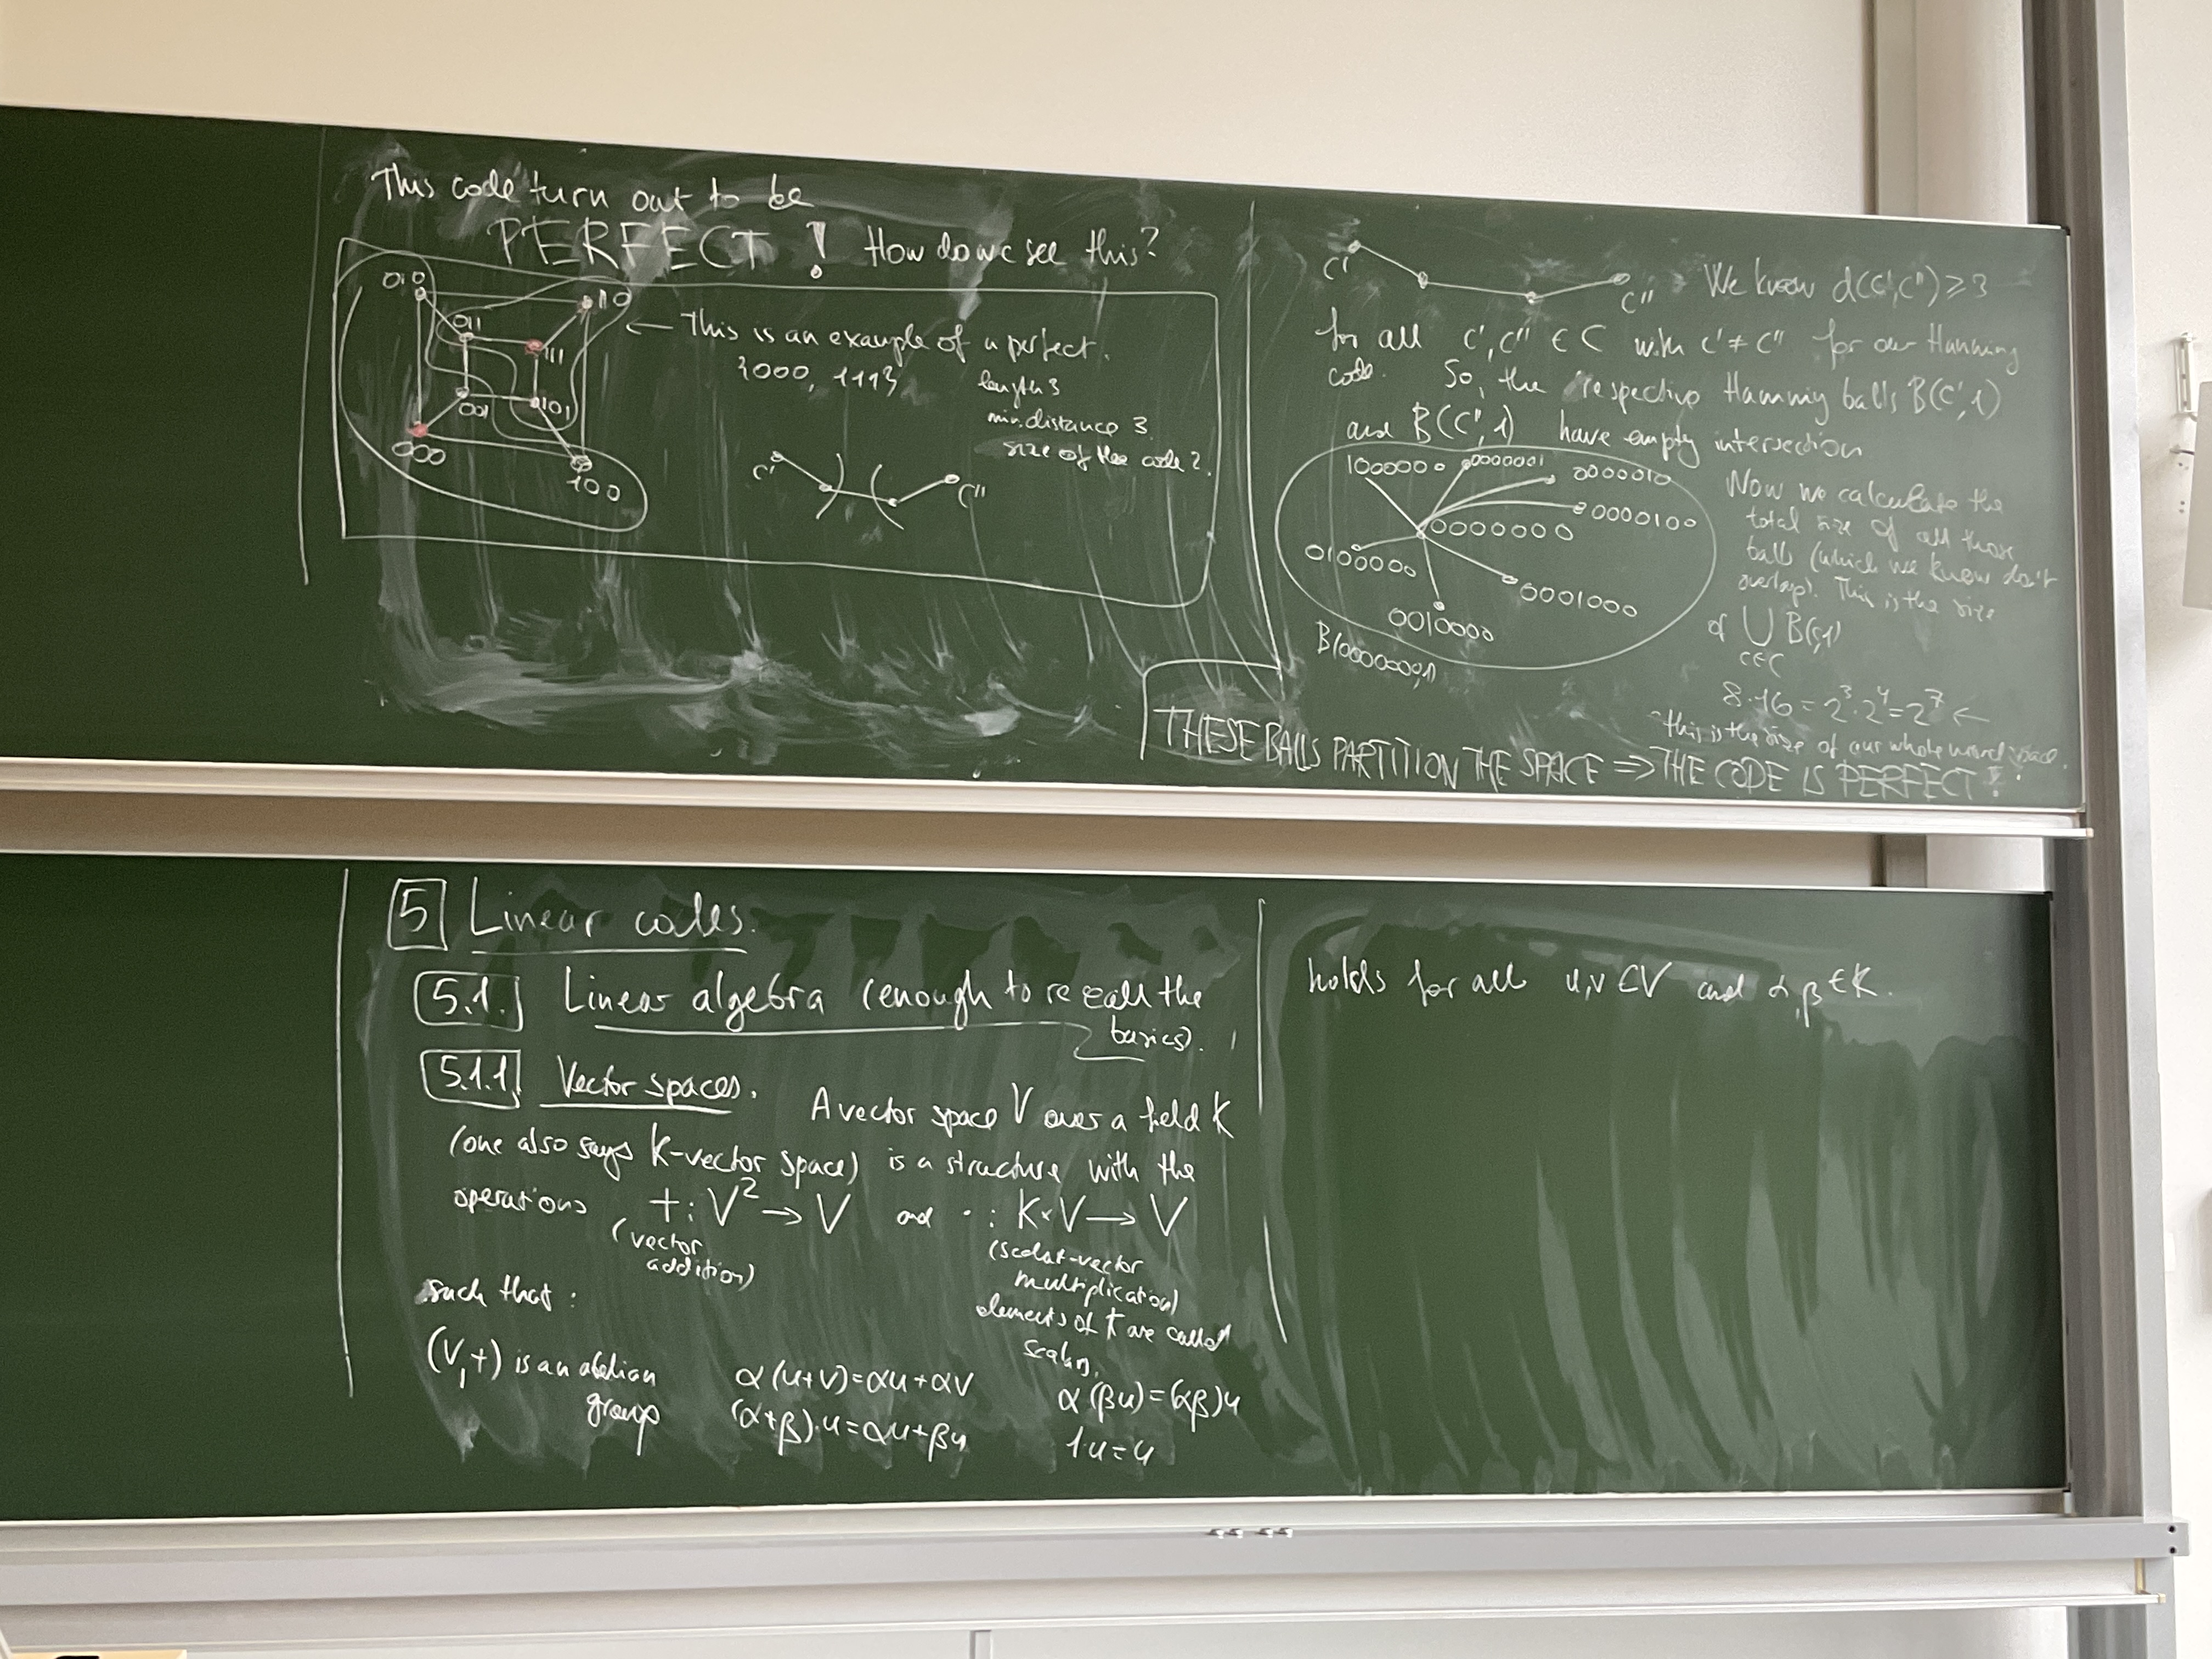 This code turn out to be
PERFECT! How do we see this?
010
110
011
111
001
101
000
100
← This is an example of a perfect.
{000, 111}
length 3
min. distance 3
size of the code 2.
C'
C''
C'
C''
We know d(C',C'') ≥ 3
for all C', C'' ∈ C with C' ≠ C'' for our Hamming
code. So, the respective Hamming balls B(C',1)
and B(C'',1) have empty intersection
1000000
0000001
0000010
0000100
0000000
0100000
0001000
0010000
B(0000000,1)
Now we calculate the
total size of all those
balls (which we know don't
overlap). This is the size
of ⋃ B(c,1)
c∈C
8·16 = 2³·2⁴ = 2⁷ ←
this is the size of our whole word space.
THESE BALLS PARTITION THE SPACE ⇒ THE CODE IS PERFECT!
5 Linear codes.
5.1. Linear algebra (enough to recall the
basics).
5.1.1 Vector spaces. A vector space V over a field K
(one also says K-vector space) is a structure with the
operations + : V² → V and · : K×V → V
(vector
addition)
(scalar-vector
multiplication)
elements of K are called
scalars.
such that :
(V,+) is an abelian
group
α(u+v)=αu+αv
(α+β)·u=αu+βu
α(βu)=(αβ)u
1·u=u
holds for all u,v ∈ V and α,β ∈ K.